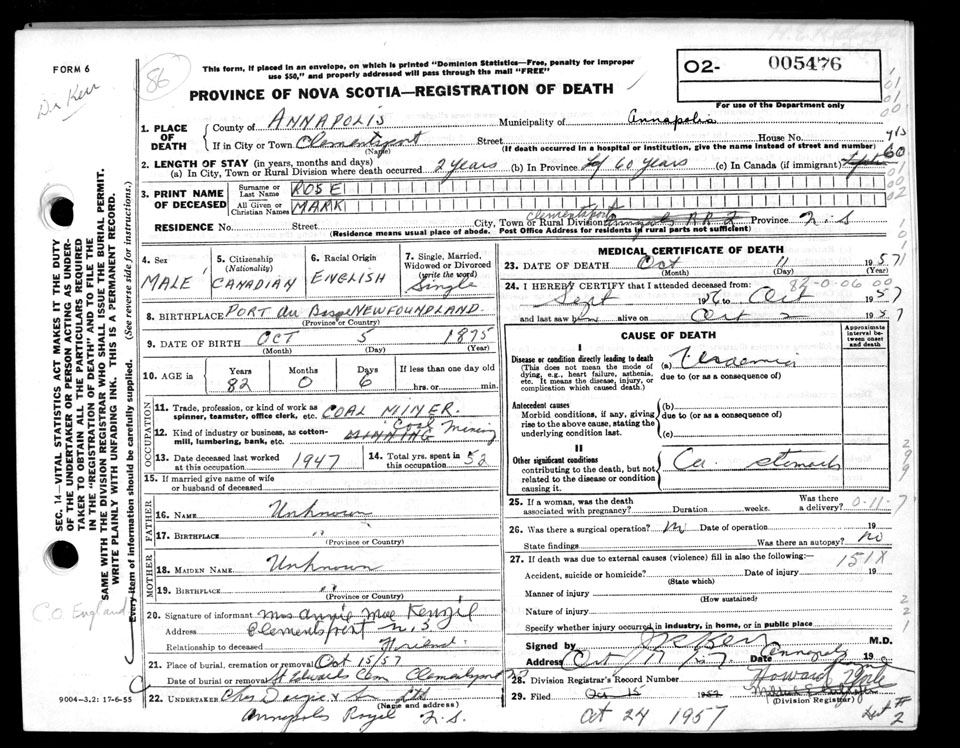 FORM 6
Dr Kerr
86
This form, if placed in an envelope, on which is printed "Dominion Statistics—Free, penalty for improper
use $50," and properly addressed will pass through the mail "FREE"
PROVINCE OF NOVA SCOTIA—REGISTRATION OF DEATH
O2- 005476
For use of the Department only
1. PLACE OF DEATH
County of ANNAPOLIS Municipality of Annapolis
If in City or Town Clementsport Street House No.
(Name) (If death occurred in a hospital or institution, give the name instead of street and number)
2. LENGTH OF STAY (in years, months and days)
(a) In City, Town or Rural Division where death occurred 2 years (b) In Province 60 years (c) In Canada (if immigrant) 60 yrs
3. PRINT NAME OF DECEASED
Surname or Last Name ROSE
All Given or Christian Names MARK
RESIDENCE No. Street City, Town or Rural Division Clementsport R R 2 Province N. S
(Residence means usual place of abode. Post Office Address for residents in rural parts not sufficient)
4. Sex MALE
5. Citizenship (Nationality) CANADIAN
6. Racial Origin ENGLISH
7. Single, Married, Widowed or Divorced (write the word) Single
8. BIRTHPLACE PORT Au NEWFOUNDLAND.
(Province or Country)
9. DATE OF BIRTH OCT 5 1875
(Month) (Day) (Year)
10. AGE in Years Months Days If less than one day old
82 0 6 hrs. or min.
OCCUPATION
11. Trade, profession, or kind of work as spinner, teamster, office clerk, etc. COAL MINER.
12. Kind of industry or business, as cotton-mill, lumbering, bank, etc. MINNING Coal Mining
13. Date deceased last worked at this occupation 1947
14. Total yrs. spent in this occupation 52
15. If married give name of wife or husband of deceased
FATHER
16. NAME Unknown
17. BIRTHPLACE "
(Province or Country)
MOTHER
18. MAIDEN NAME Unknown
19. BIRTHPLACE "
(Province or Country)
20. Signature of informant Mrs Annie Mae
Address Clementsport N.S
Relationship to deceased Friend
21. Place of burial, cremation or removal Oct 15/57
Date of burial or removal St Edwards Cem Clementsport
22. UNDERTAKER Chas & Son Ltd
(Name and address)
Annapolis Royal N. S.
MEDICAL CERTIFICATE OF DEATH
23. DATE OF DEATH Oct 11 1957
(Month) (Day) (Year)
82-0-06 00
24. I HEREBY CERTIFY that I attended deceased from:
Sept 1956 to Oct 1957
and last saw him alive on Oct 2 1957
CAUSE OF DEATH
Approximate interval between onset and death
I
Disease or condition directly leading to death
(This does not mean the mode of dying, e.g., heart failure, asthenia, etc. It means the disease, injury, or complication which caused death.)
(a) Uraemia
due to (or as a consequence of)
Antecedent causes
Morbid conditions, if any, giving rise to the above cause, stating the underlying condition last.
(b)
due to (or as a consequence of)
(c)
II
Other significant conditions
contributing to the death, but not related to the disease or condition causing it.
Ca. stomach
25. If a woman, was the death associated with pregnancy? Duration weeks. Was there a delivery?
0-11-7
26. Was there a surgical operation? Date of operation 19
State findings Was there an autopsy? no
27. If death was due to external causes (violence) fill in also the following:
151X
Accident, suicide or homicide? Date of injury 19
(State which)
Manner of injury
(How sustained)
Nature of injury
Specify whether injury occurred in industry, in home, or in public place
Signed by Kerr M.D.
Address Annapolis Date 19
Oct 57
28. Division Registrar's Record Number
Howard
29. Filed Oct 15 1957
(Division Registrar)
Oct 24 1957
Dist # 2
SEC. 14—VITAL STATISTICS ACT MAKES IT THE DUTY
OF THE UNDERTAKER OR PERSON ACTING AS UNDER-
TAKER TO OBTAIN ALL THE PARTICULARS REQUIRED
IN THE "REGISTRATION OF DEATH" AND TO FILE THE
SAME WITH THE DIVISION REGISTRAR WHO SHALL ISSUE THE BURIAL PERMIT.
WRITE PLAINLY WITH UNFADING INK. THIS IS A PERMANENT RECORD.
Every item of information should be carefully supplied. (See reverse side for instructions.)
C.O. England
9004—3,2: 17-6-55